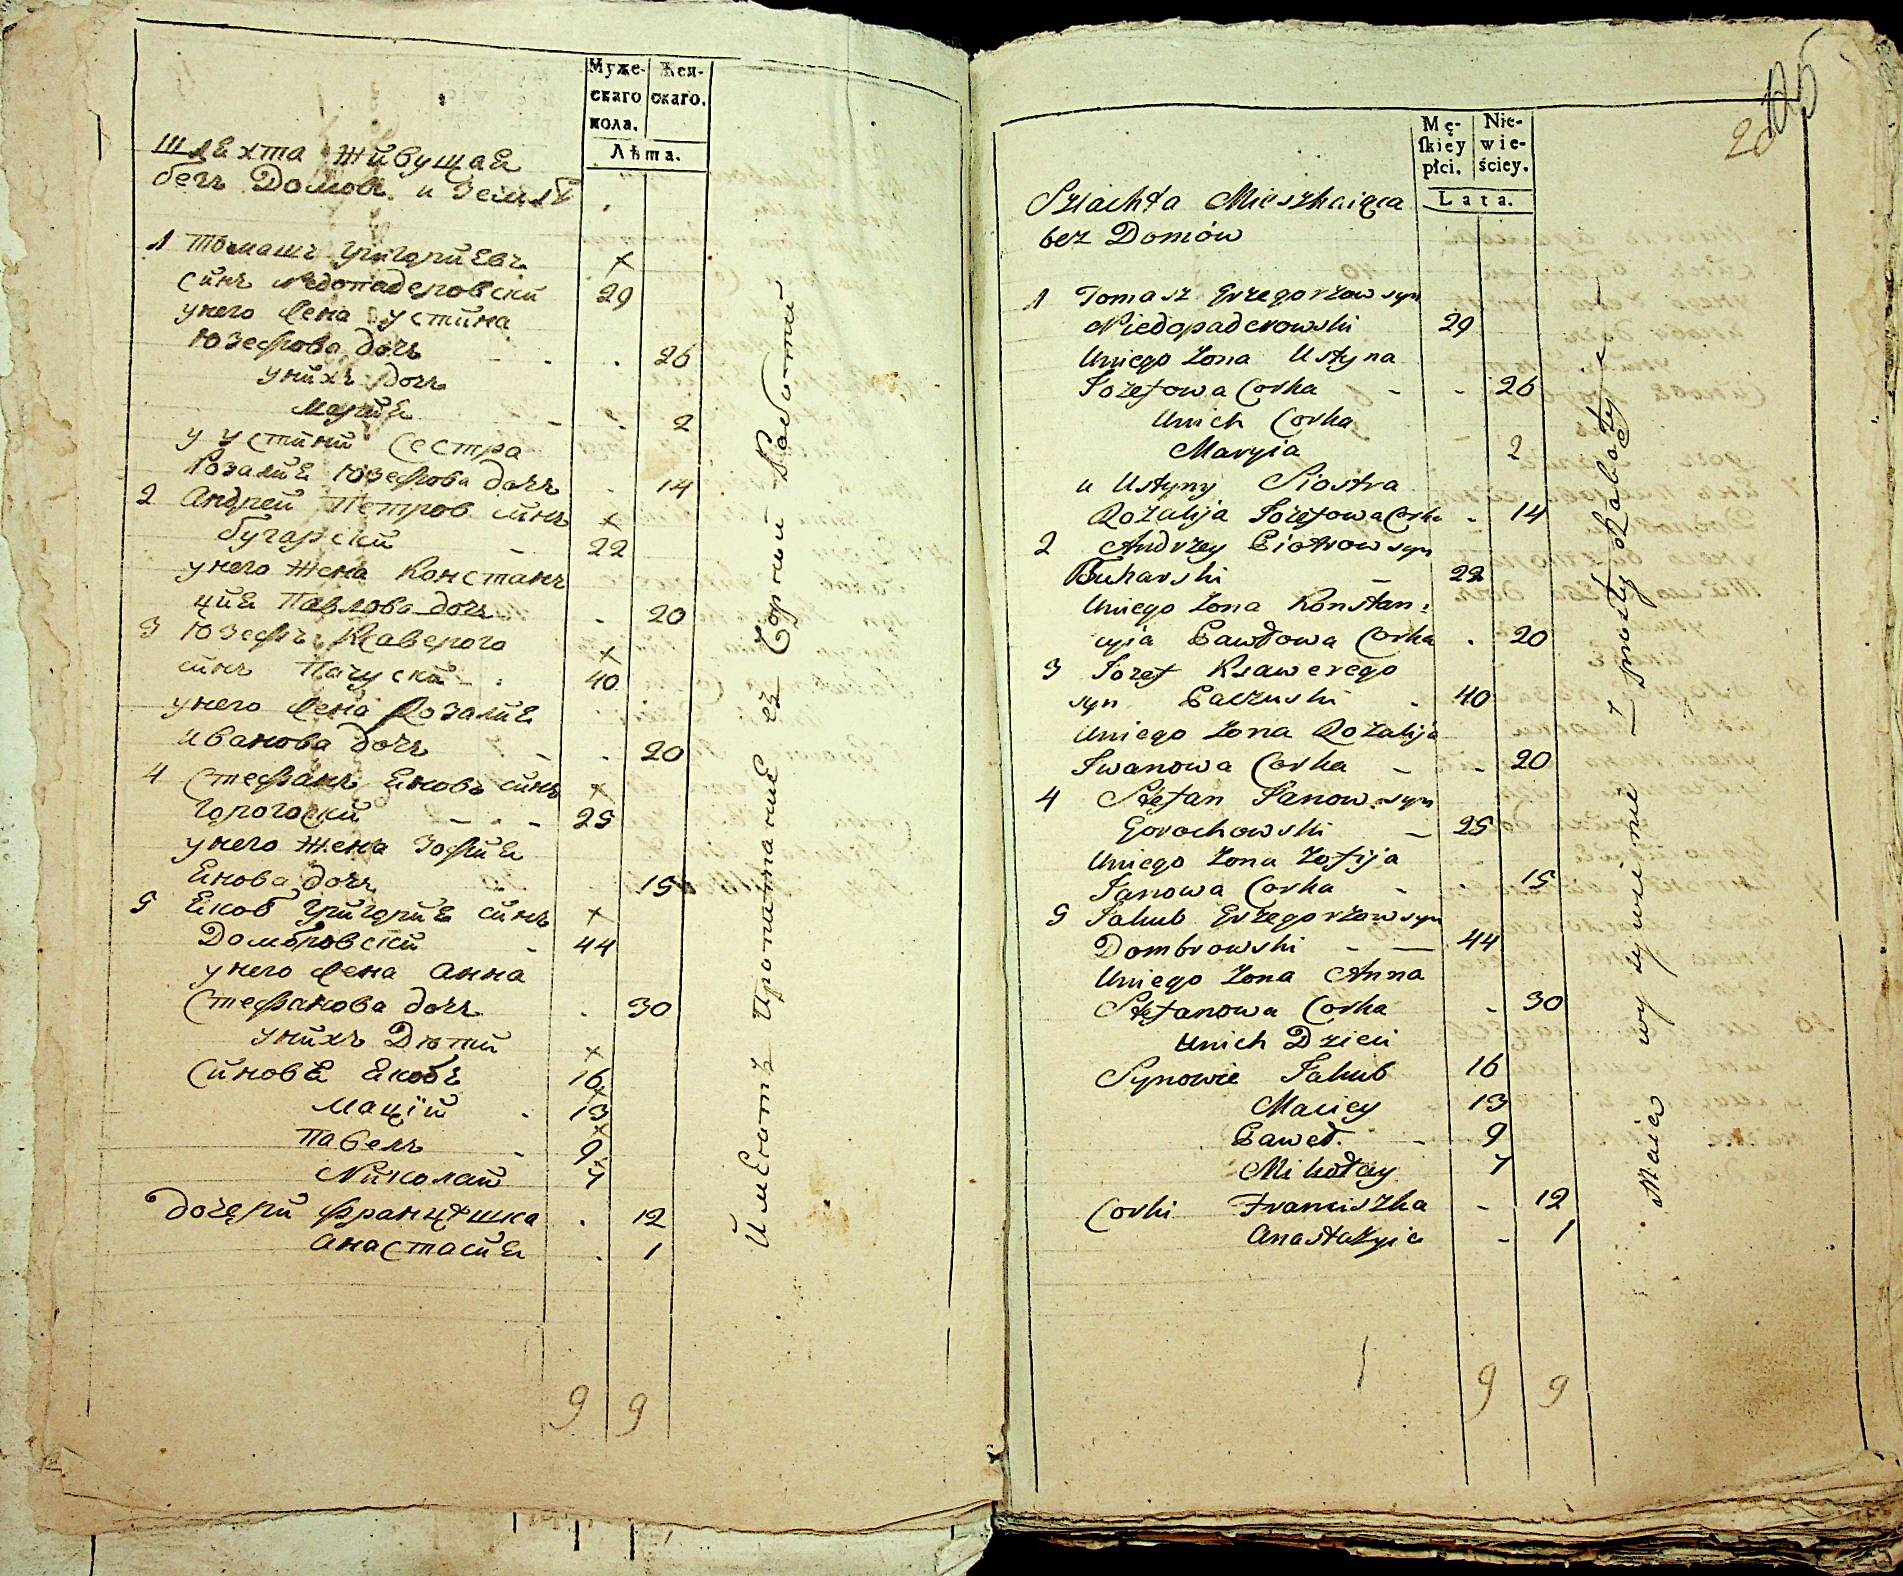 Муже-
скаго
пола.
Жен-
скаго.
Лѣта.
Шлехта Живущая
безъ Домовъ и Землѣ
1 Томашъ Григориевъ
синъ Недопадеровски 29
унего жена Устина
Юзефова дочъ - . 26
унихъ дочъ
Марие - . 2
у Устини Сестра
Розалие Юзефова дочъ . 14
2 Андрей Петров синъ
бугарски - 22
унего жена Констанъ
цие Павлова дочъ . 20
3 Юзефъ Ксаверого
синъ Пачуски - . 40
унего жена Розалие
иванова дочъ - . 20
4 Стефанъ Еновъ синъ
Горогоски - . - 25
унего жена Зофие
Енова дочъ 15
5 Екоб Григорие синъ
Домбровски - 44
унего жена Анна
Стефанова дочъ . 30
унихъ Дѣти
Синовѣ Екобъ 16
Маций . 13
Павелъ . 9
Николай 7
дочери Францишка . 12
Анастасие . 1
9 9
Имеютъ Пропитание съ Чорной Работи
205
20
Mę-
skiey
płci.
Nie-
wie-
ściey.
Lata.
Szlachta Mieszkaiąca
bez Domów
1 Tomasz Grzegorzow syn
Niedopaderowski 29
Uniego Zona Ustyna
Jozefowa Corka - - 26
Unich Corka
Maryia 2
u Ustyny Siostra
Rozalija Jozefowa Corka . 14
2 Andrzey Piotrow syn
Buharski - 22
Uniego Zona Konstan:
cyia Pawłowa Corka . 20
3 Jozef Ksawerego
syn Paczuski . 40
Uniego Zona Rozalija
Iwanowa Corka - - 20
4 Stefan Janow syn
Gorochowski - 25
Uniego Zona Zofija
Janowa Corka - . 15
5 Jakub Grzegorzow syn
Dombrowski - - 44
Uniego Zona Anna
Stefanowa Corka . 30
Unich Dzieci
Synowie Jakub 16
Maciey 13
Paweł. - 9
Mikołay 7
Corki Franciszka - 12
Anastazyia - 1
9 9
Maią wyżywienie z prosty Raboty